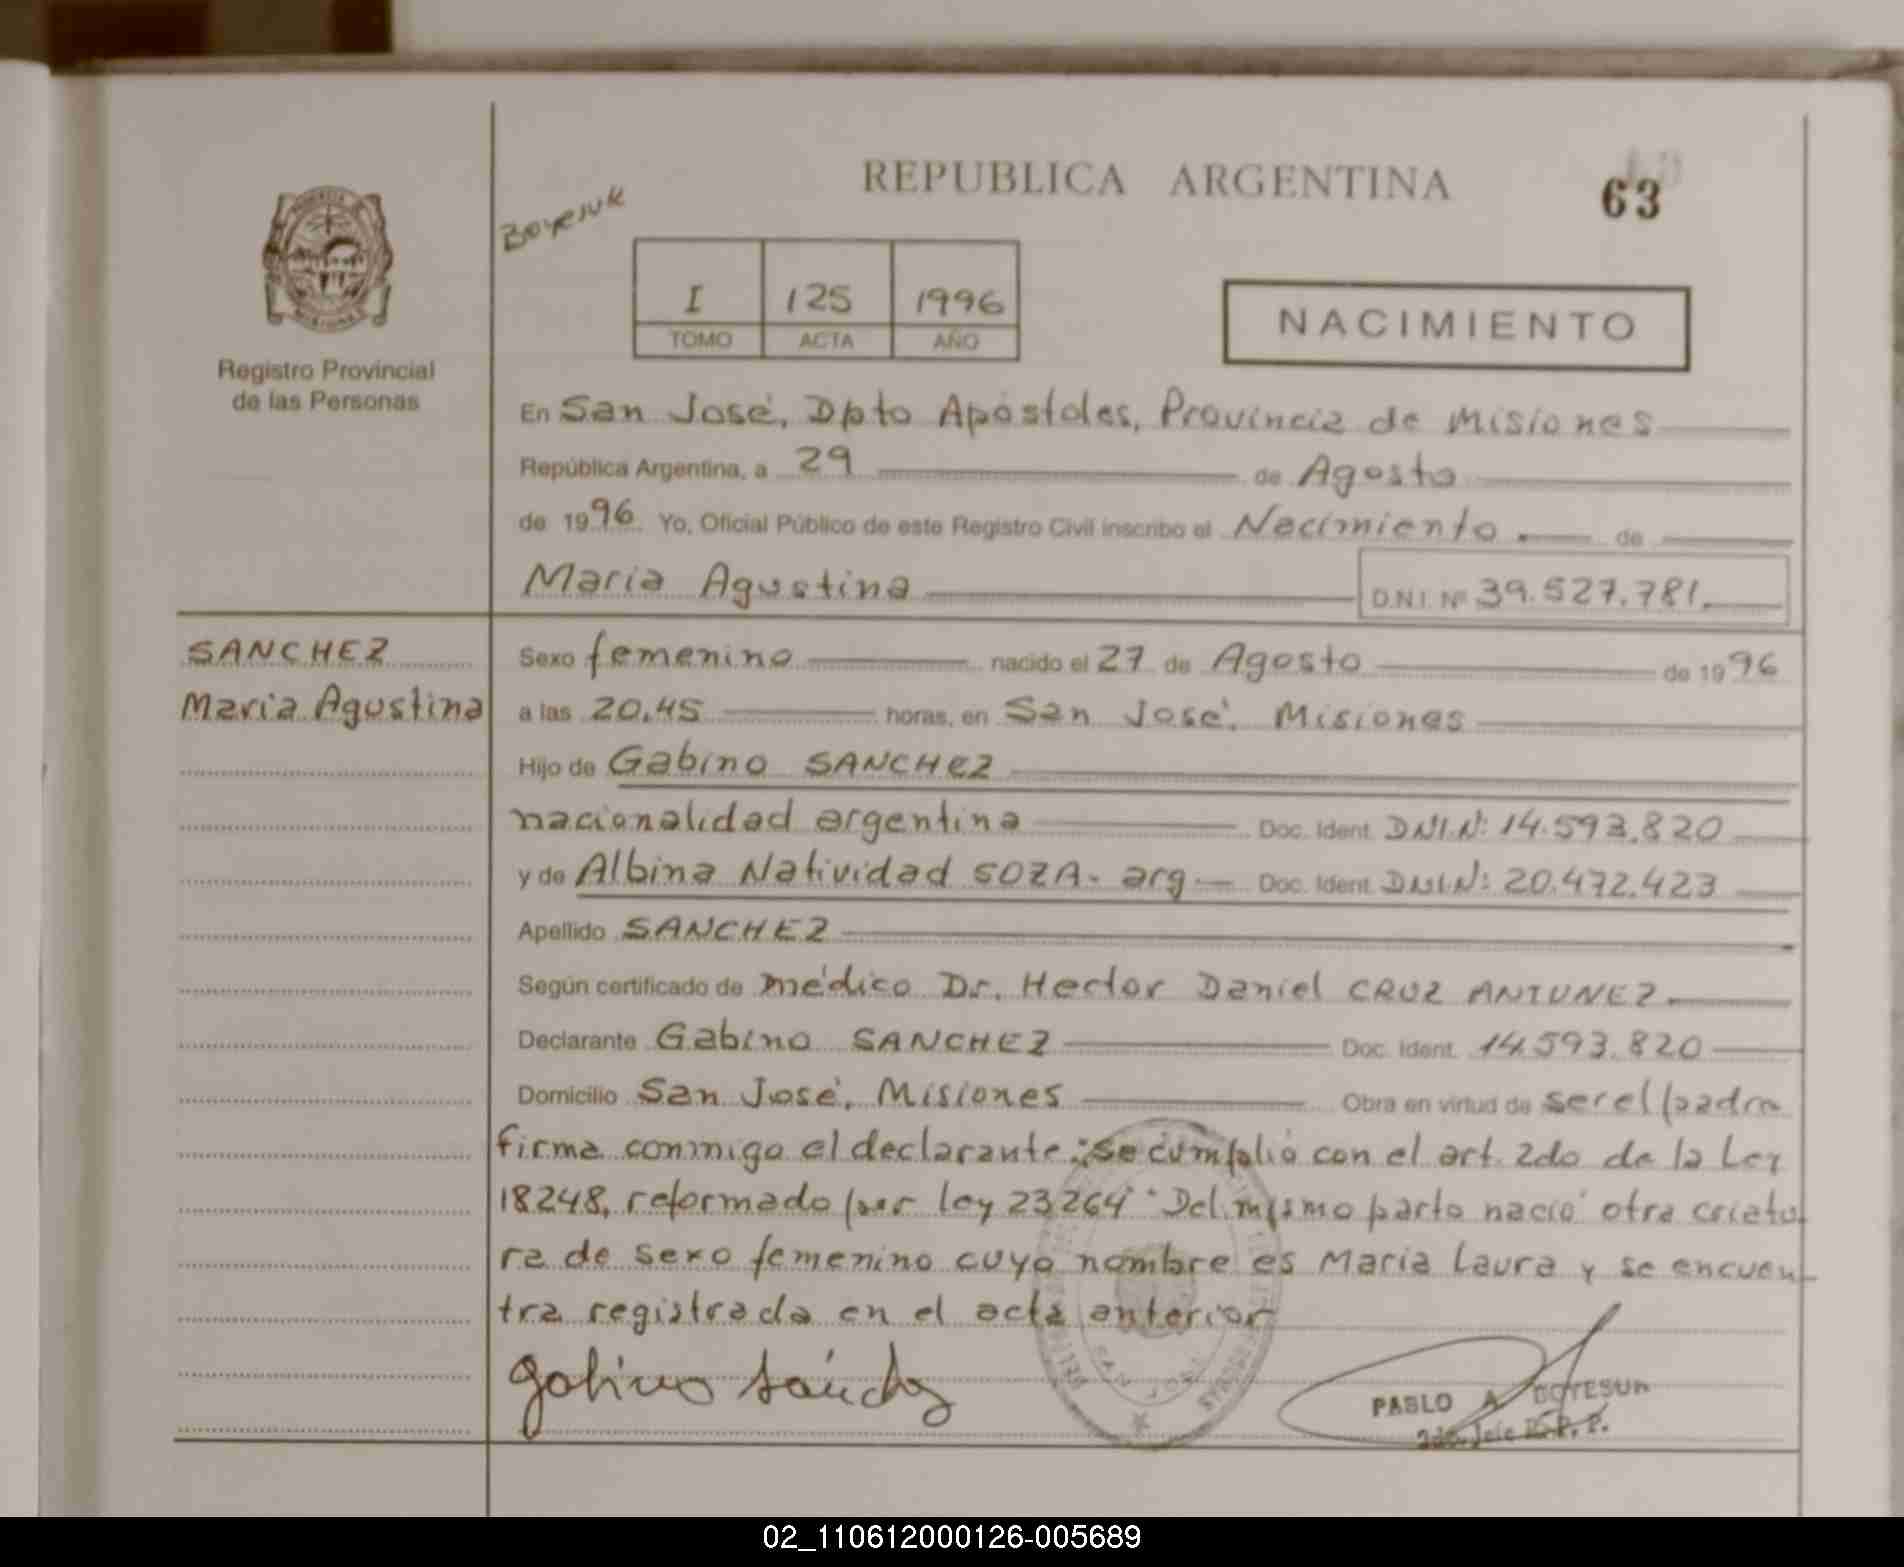 REPUBLICA ARGENTINA
63
Boyesuk
I 125 1996
TOMO ACTA AÑO
NACIMIENTO
MISIONES
Registro Provincial
de las Personas
En San José, Dpto Apóstoles, Provincia de Misiones
República Argentina, a 29 de Agosto
de 1996 Yo, Oficial Público de este Registro Civil inscribo el Nacimiento de
Maria Agustina D.N.I. Nº 39.527.781.
SANCHEZ
Maria Agustina
Sexo femenino nacido el 27 de Agosto de 1996
a las 20,45 horas, en San José. Misiones
Hijo de Gabino SANCHEZ
nacionalidad argentina Doc. Ident. DNI.N: 14.593.820
y de Albina Natividad SOZA- arg Doc. Ident. DNI.N: 20.472.423
Apellido SANCHEZ
Según certificado de médico Dr. Hector Daniel CRUZ ANTUNEZ.
Declarante Gabino SANCHEZ Doc. Ident. 14.593.820
Domicilio San José, Misiones Obra en virtud de ser el padre
firma conmigo el declarante "se cumplió con el art. 2do de la Ley
18248, reformado por ley 23264" Del mismo parto nació otra criatu
ra de sexo femenino cuyo nombre es Maria Laura y se encuen
tra registrada en el acta anterior
Gabino Sánchez
SAN JOSE
PABLO A. BOYESUK
2do. Jefe R. P. P.
02_110612000126-005689